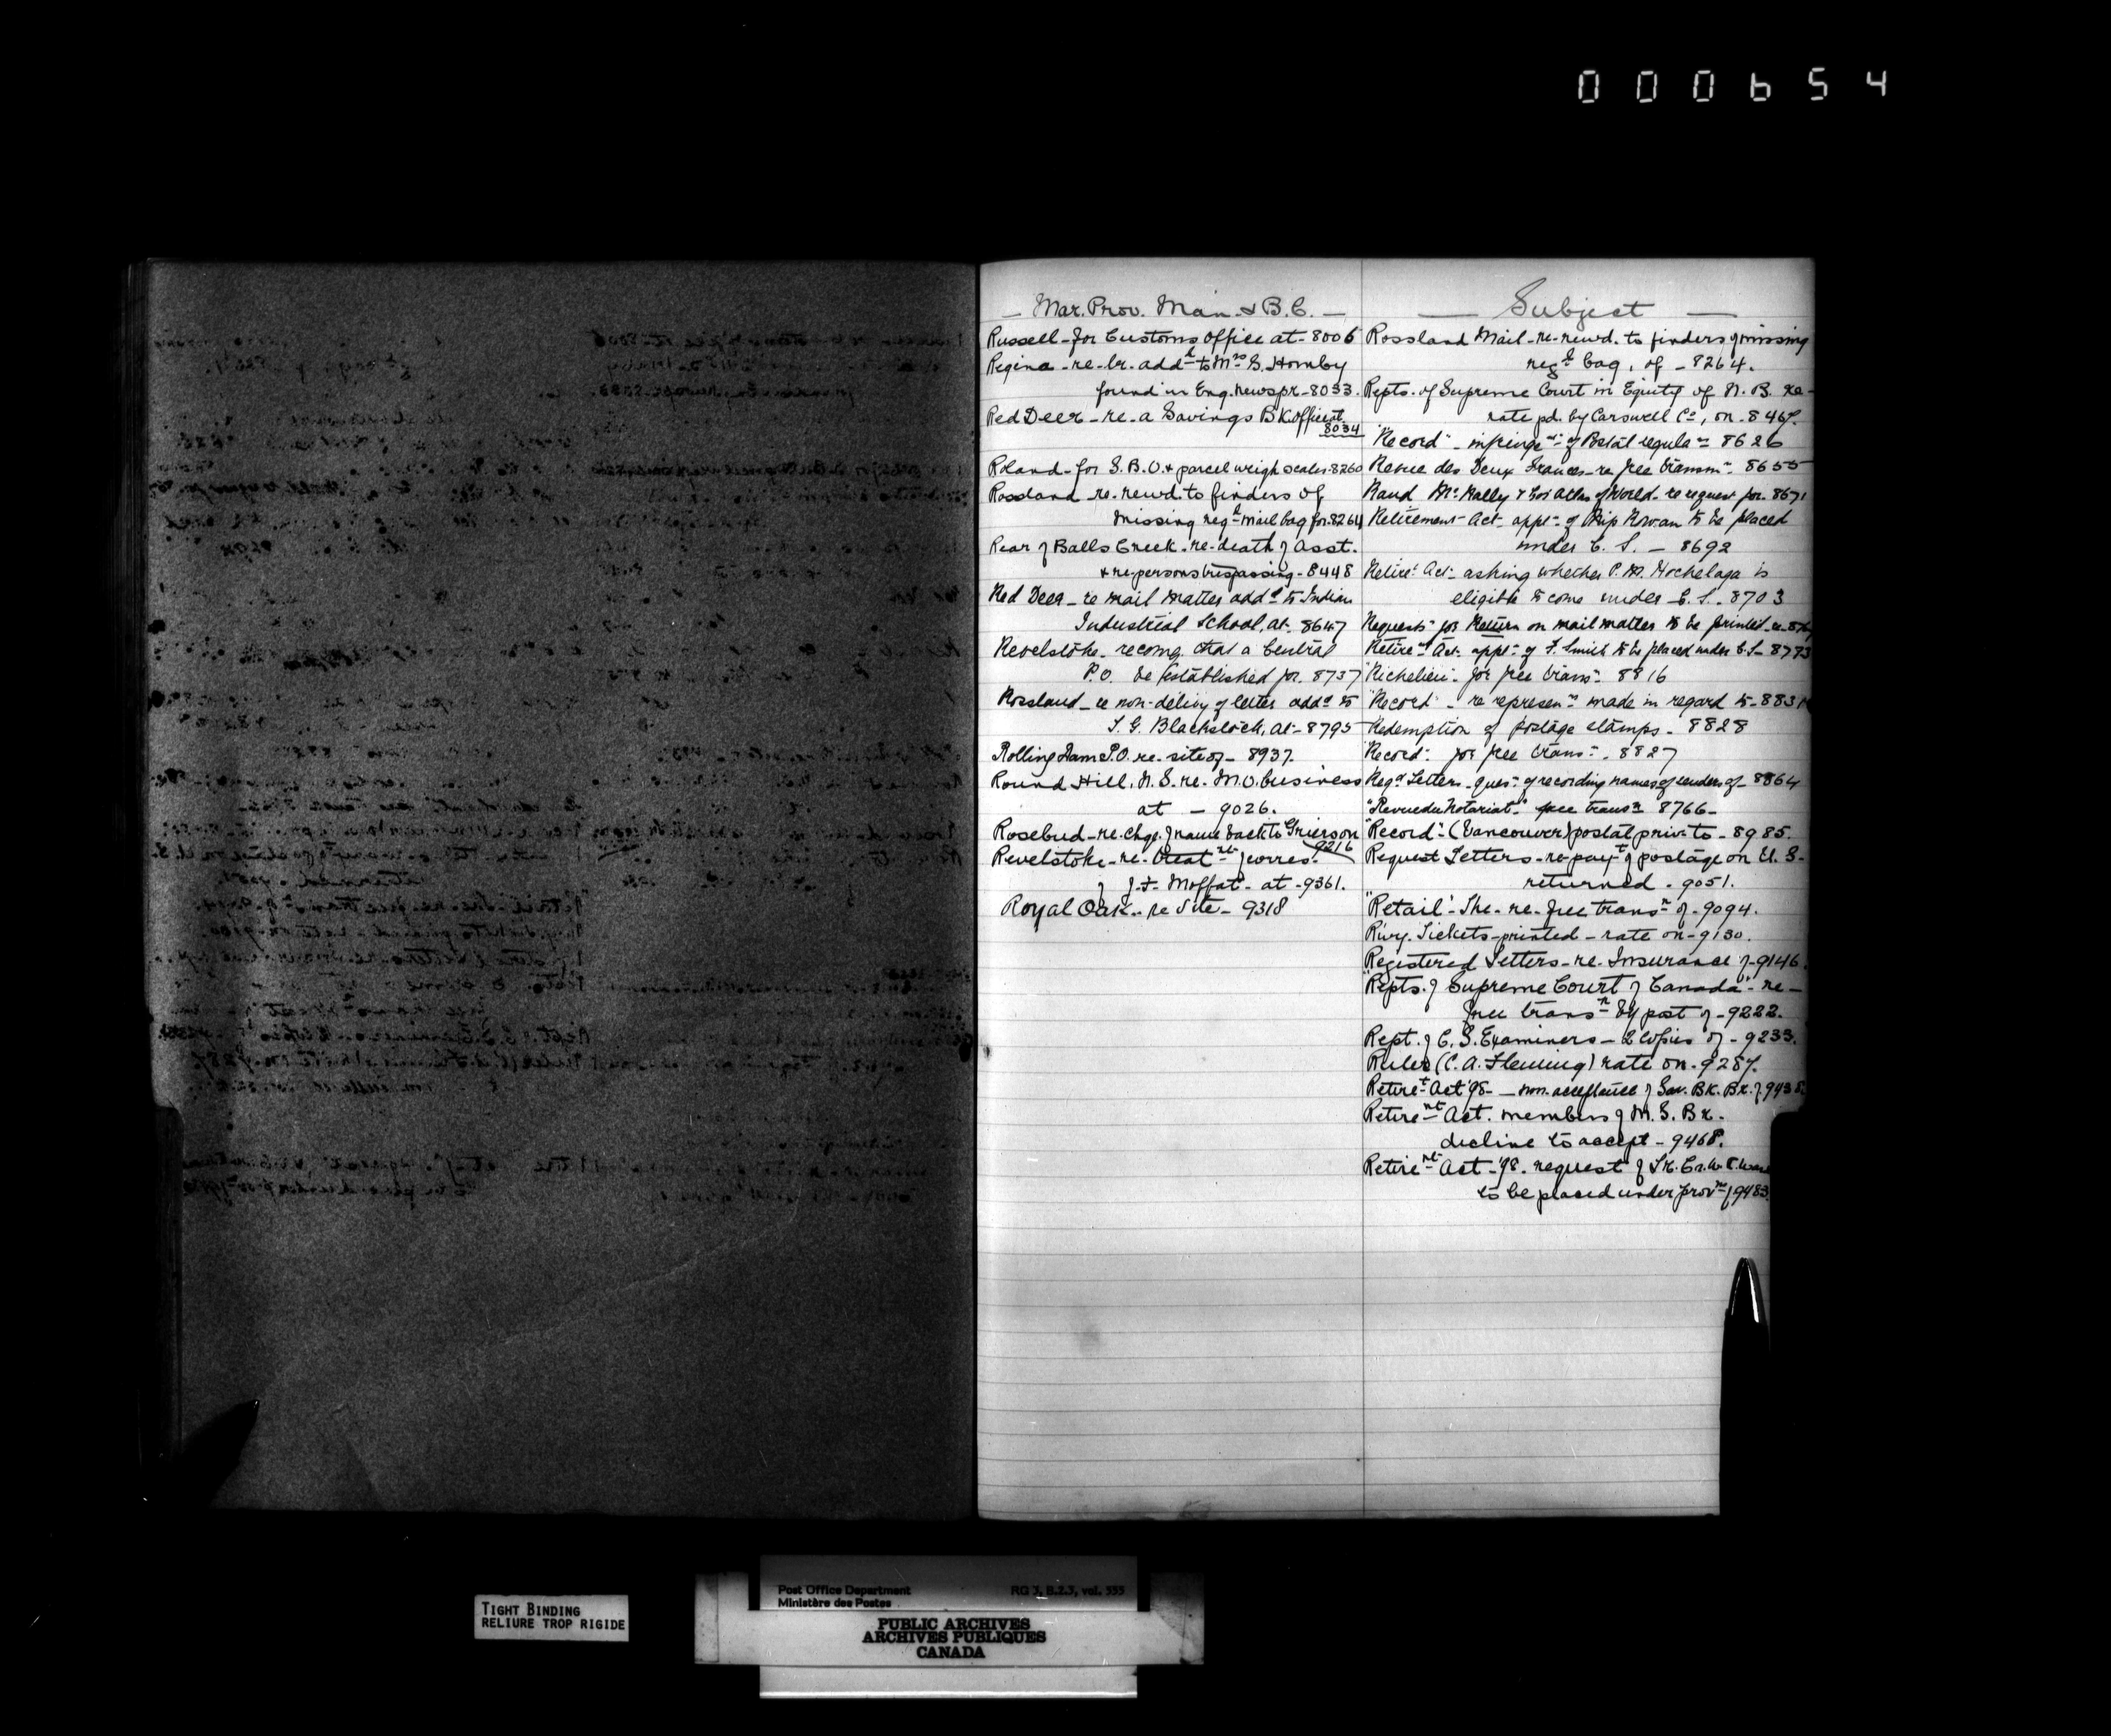 000654
Mar. Prov. Man. & B.C.
Russell - for Customs Office at - 8006
Regina - re - lr. addd to Mrs S. Hornby
found in Eng. newspr - 8033.
Red Deer - re - a Savings Bk. Office at
8034
Roland - for S.B.O. & parcel weigh scales - 8260
Rossland - re - rewd. to finders of
missing regd mail bag for 8264
Rear of Balls Creek - re - death of Asst.
& re - persons trespassing - 8448
Red Deer - re mail matter addd to Indian
Industrial School, at - 8647
Revelstoke - recomg that a Central
P.O. be established for - 8737
Rossland - re non-delivy of letter addd to
T. G. Blackstock, at - 8795
Rolling Dam P.O. re - site of - 8937.
Round Hill, N.S. re - M.O. business
at - 9026.
Rosebud - re - chge. of name back to Grierson
9216
Revelstoke - re - treatmt of corres.
of J. F. Moffat - at - 9361.
Royal Oak - re Site - 9318
Subject
Rossland Mail - re - rewd. to finders of missing
regd bag, of - 8264.
Repts. of Supreme Court in Equity of N.B. re -
rate pd. by Carswell Co, on - 8467.
"Record" - infringemt of Postal regulans 8626
Revue des Deux Frances - re free transmn - 8655
Rand McNally & Co's Atlas of World - re request for - 8671
Retirement Act - appln of Rowan to be placed
under C. S. - 8692
Retiremt Act - asking whether P.M. Hochelaga is
eligible to come under C. S. - 8703
Requests for Return on mail matter to be printed - re -
Retiremt Act - applt of F. Smith to be placed under C.S. - 8793
"Richelieu" - for free transn - 8816
"Record" - re represens made in regard to - 883
Redemption of postage stamps - 8828
"Record" - for free transn - 8827
Regd Letters - ques. of recording names of senders of - 8864
"Revue du Notariat" - free transn 8766 -
"Record" (Vancouver) postal priv. to - 8985.
Request Letters - re - payt of postage on U. S.
returned - 9051.
"Retail" - The - re - free transn of - 9094.
Rwy. Tickets - printed - rate on - 9130.
Registered Letters - re - Insurance of - 9146.
"Repts. of Supreme Court of Canada" - re -
free transn by post of - 9222.
Rept. of C. S. Examiners - 2 Copies of - 9233.
Rules (C. A. Fleming) rate on - 9287.
Retiret Act '98 - non-acceptance of Sav. Bk. Br. of 943
Retiremt Act. members of M. S. Br.
decline to accept - 9468.
Retiremt Act - '98. request of
to be placed under provns of 9483
TIGHT BINDING
RELIURE TROP RIGIDE
Post Office Department RG 3, B.2.3, vol. 555
Ministère des Postes
PUBLIC ARCHIVES
ARCHIVES PUBLIQUES
CANADA